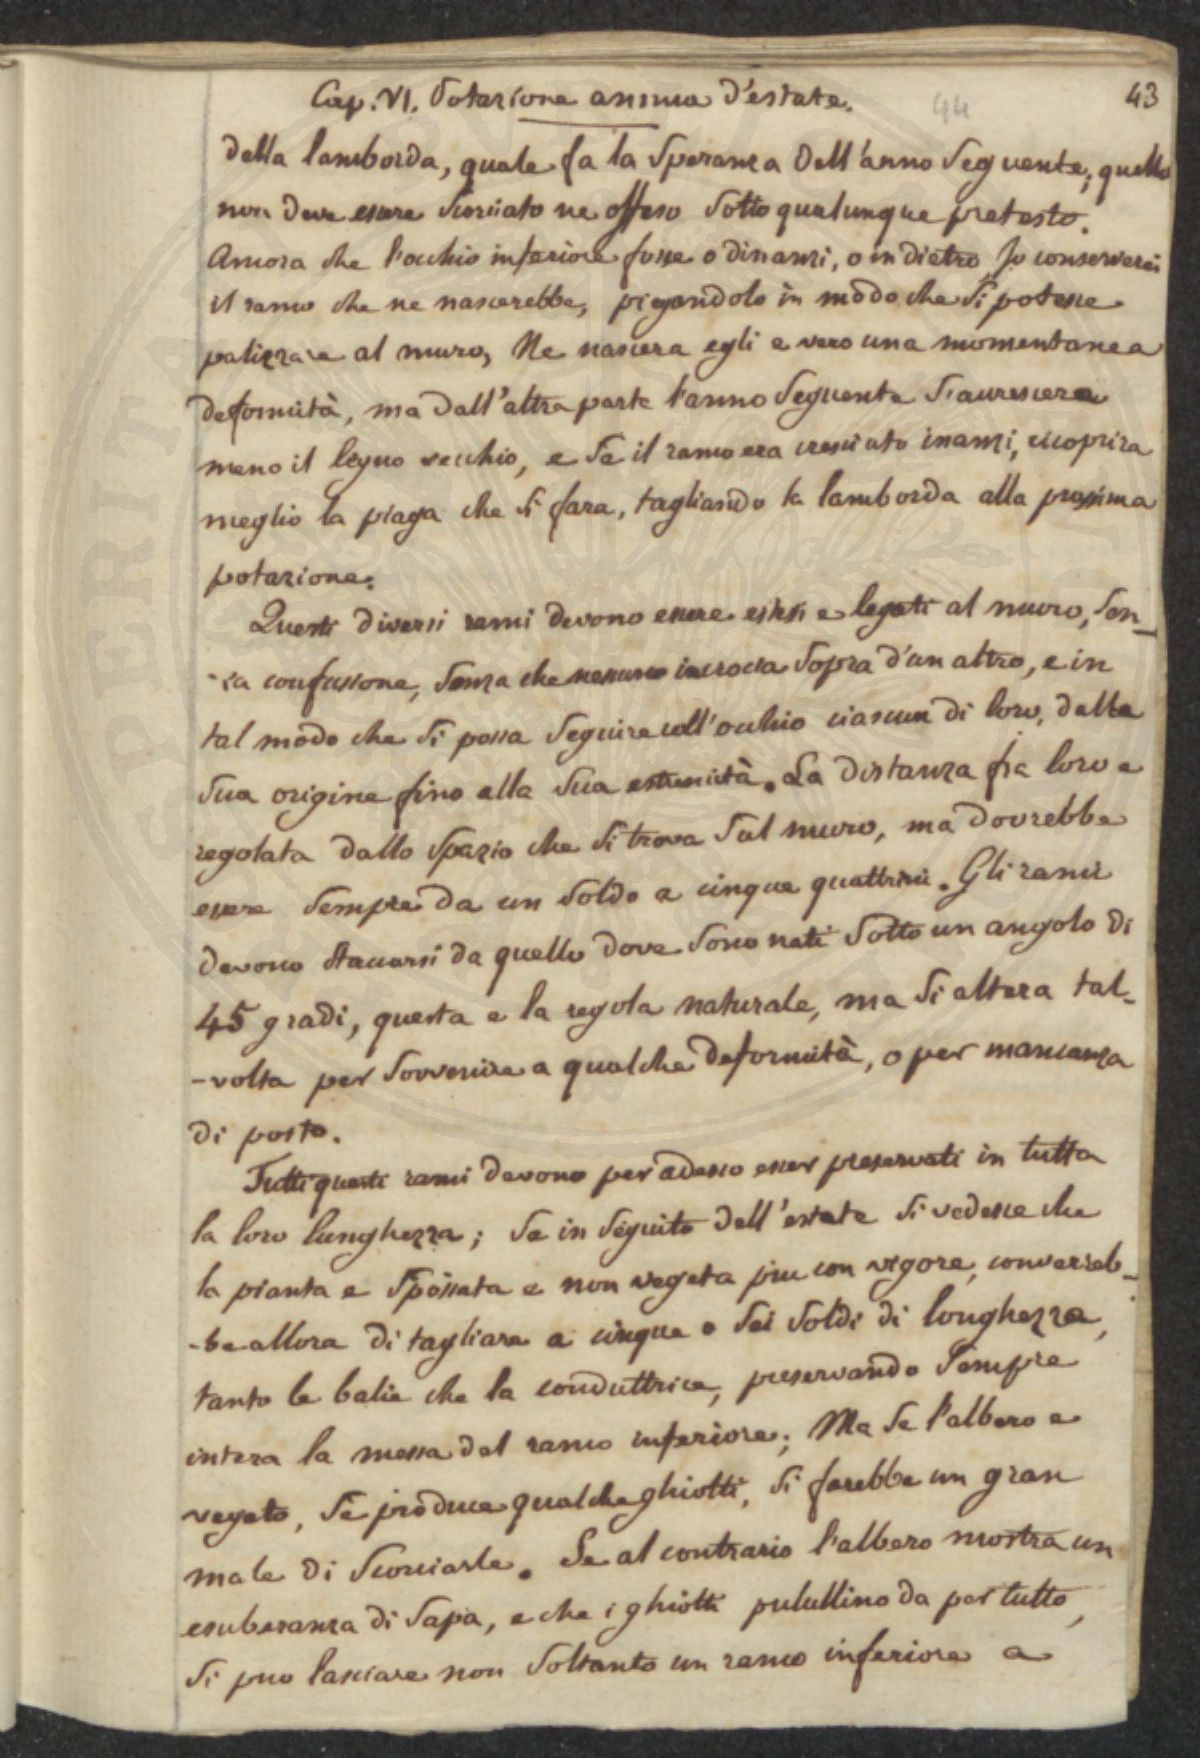 Cap. VI. Potazione annua d'estate. 44 43
della lamborda, quale fa la speranza dell'anno seguente; quello
non deve essere scorciato ne offeso sotto qualunque pretesto.
Ancora che l'occhio inferiore fosse o dinanzi, o in dietro Jo conserverei
il ramo che ne nascerebbe, pigandolo in modo che si potesse
palizzare al muro, Ne nascera egli e vero una momentanea
deformità, ma dall'altra parte l'anno seguente s'accrescera
meno il legno vecchio, e se il ramo era cresciuto inanzi, ricoprira
meglio la piaga che si fara, tagliando la lamborda alla prossima
potazione.
Questi diversi rami devono essere estesi e legati al muro, sen-
-za confusione, senza che nessuno incrocia sopra d'un altro, e in
tal modo che si possa seguire coll'occhio ciascun di loro, dalla
sua origine fino alla sua estremità. La distanza fra loro e
regolata dallo spazio che si trova sul muro, ma dovrebbe
essere sempre da un soldo a cinque quattrini. Gli rami
devono staccarsi da quello dove sono nati sotto un angolo di
45 gradi, questa e la regola naturale, ma si altera tal-
-volta per sovvenire a qualche deformità, o per mancanza
di posto.
Tutti questi rami devono per adesso esser preservati in tutta
la loro lunghezza; se in seguito dell'estate si vedesse che
la pianta e spossata e non vegeta piu con vigore, converreb-
-be allora di tagliare a cinque o sei soldi di longhezza,
tanto le balie che la conduttrice, preservando sempre
intera la messa del ramo inferiore; Ma se l'albero e
vegeto, se produce qualche ghiotti, si farebbe un gran
male di scorciarle. Se al contrario l'albero mostra un
esuberanza di sapa, e che i ghiotti pulullino da per tutto,
si puo lasciare non soltanto un ramo inferiore a